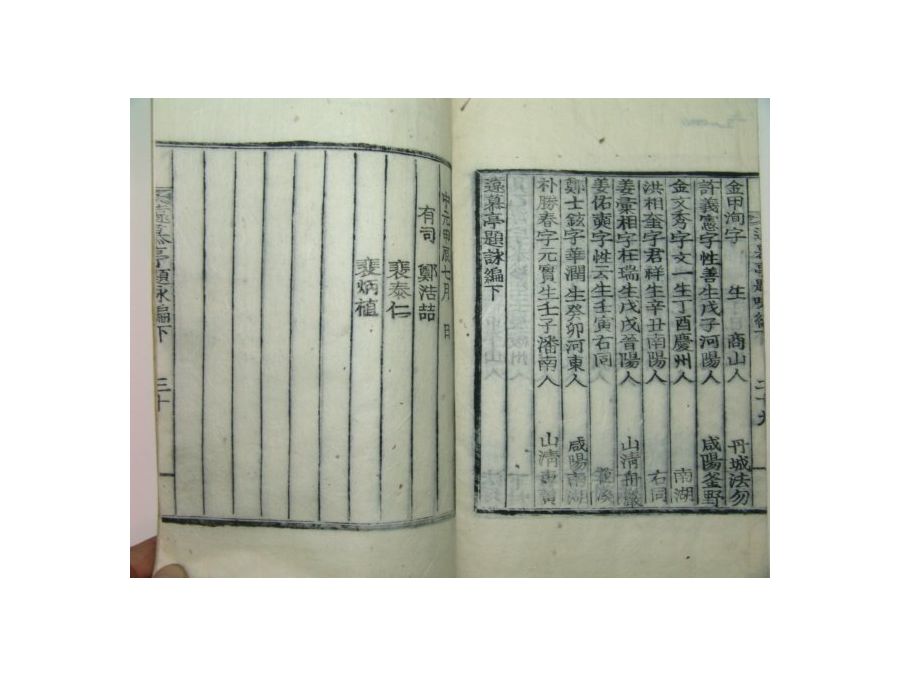 金甲洵字 生 商山人 丹城法勿
許義憲字性善生戊子河陽人 咸陽釜野
金文秀字文一生丁酉慶州人 南湖
洪相奎字君祥生辛丑南陽人 右同
姜彙相字 瑞生戊戌晋陽人 山清舟
姜佑奭字性云生壬寅右同
鄭士鉉字華潤生癸卯河東人 咸陽南湖
朴勝春字元實生壬子潘南人 山清
遠慕亭題詠編下
七月 日
有司 鄭浩喆
裵泰仁
裵炳植
遠慕亭題詠編下 三十